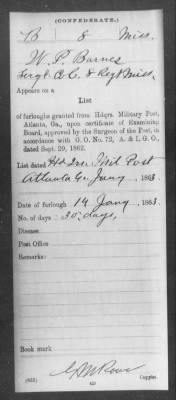 (CONFEDERATE.)
B 8 Miss.
W. P. Barnes
Sergt. Co. C. 8 Regt Miss.
Appears on a
List
of furloughs granted from Hdqrs. Military Post,
Atlanta, Ga., upon certificate of Examining
Board, approved by the Surgeon of the Post, in
accordance with G. O. No. 72, A. & I. G. O.,
dated Sept. 29, 1862.
List dated Hd Qrs. Post
Atlanta Ga. Jany, 1863.
Date of furlough 14 Jany, 1863.
No. of days 30 days,
Disease
Post Office
Remarks:
Book mark
(635) Copyist.